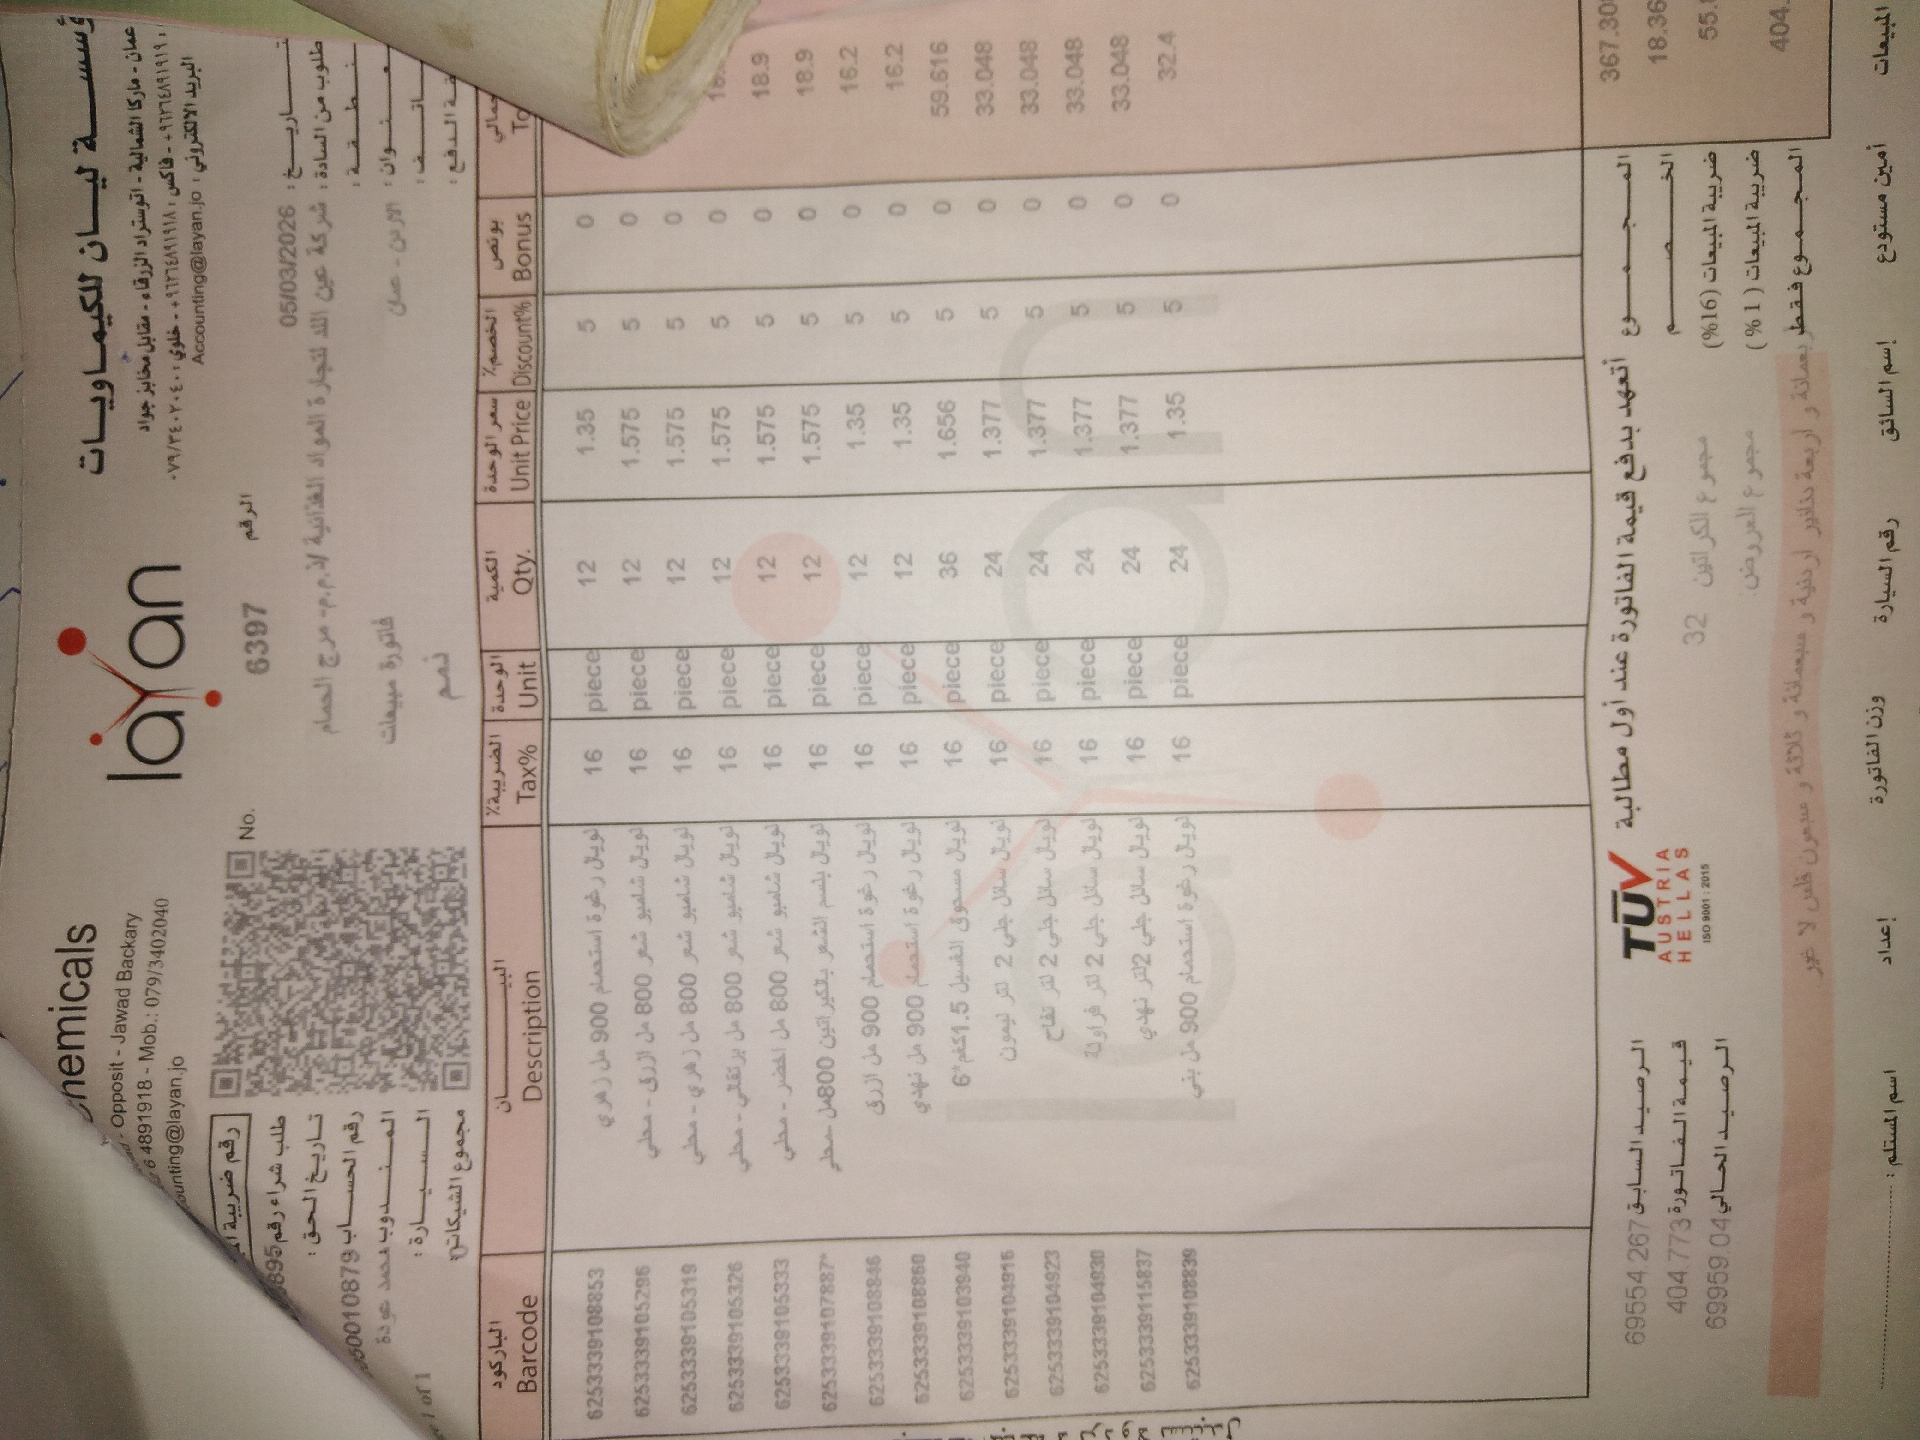 ؤسسة ليان للكيماويات
عمان - ماركا الشمالية - اتوستراد الزرقاء - مقابل مخابز جواد
+٩٦٢٦٤٨٩١٩١٨ - فاكس : +٩٦٢٦٤٨٩١٩١٩
خلوي : ٠٧٩/٣٤٠٢٠٤٠
البريد الالكتروني : Accounting@layan.jo
layan
hemicals
- Opposit - Jawad Backary
6 4891918 - Mob.: 079/3402040
ounting@layan.jo
No. 6397 الرقم
تاريخ : 05/03/2026
طلوب من السادة : شركة عين اللد لتجارة المواد الغذائية ذ.م.م- مرج الحمام
نطقة :
عنوان : الاردن - عمان
اتف :
قة الدفع :
فاتورة مبيعات
رقم ضريبة
طلب شراء رقم 895
تاريخ الحق :
رقم الحساب 50010879
المندوب محمد عودة
السيارة :
مجموع الشيكات
1 of 1
الباركود البيان الضريبة٪ الوحدة الكمية سعر الوحدة الخصم٪ بونص مالي
Barcode Description Tax% Unit Qty. Unit Price Discount% Bonus To
6253339108853 لويال رغوة استحمام 900 مل زهري 16 piece 12 1.35 5 0
6253339105296 لويال شامبو شعر 800 مل ازرق - محلي 16 piece 12 1.575 5 0
6253339105319 لويال شامبو شعر 800 مل زهري - محلي 16 piece 12 1.575 5 0
6253339105326 لويال شامبو شعر 800 مل برتقالي - محلي 16 piece 12 1.575 5 0
6253339105333 لويال شامبو شعر 800 مل اخضر - محلي 16 piece 12 1.575 5 0 18.9
6253339107887* لويال بلسم الشعر بالكيراتين 800مل -محلي 16 piece 12 1.575 5 0 18.9
6253339108846 لويال رغوة استحمام 900 مل ازرق 16 piece 12 1.35 5 0 16.2
6253339108860 لويال رغوة استحمام 900 مل نهدي 16 piece 12 1.35 5 0 16.2
6253339103940 لويال مسحوق الغسيل 1.5كغم*6 16 piece 36 1.656 5 0 59.616
6253339104916 لويال سائل جلي 2 لتر ليمون 16 piece 24 1.377 5 0 33.048
6253339104923 لويال سائل جلي 2 لتر تفاح 16 piece 24 1.377 5 0 33.048
6253339104930 لويال سائل جلي 2 لتر فراولة 16 piece 24 1.377 5 0 33.048
6253339115837 لويال سائل جلي 2لتر نهدي 16 piece 24 1.377 5 0 33.048
6253339108839 لويال رغوة استحمام 900 مل بني 16 piece 24 1.35 5 0 32.4
أتعهد بدفع قيمة الفاتورة عند أول مطالبة
TÜV
AUSTRIA
HELLAS
ISO 9001 : 2015
المجموع 367.30
الخصم 18.36
ضريبة المبيعات (16%) 55.
ضريبة المبيعات (1 %)
المجموع فقط 404.
مجموع الكراتين 32
مجموع العروض
الرصيد السابق 69554.267
قيمة الفاتورة 404.773
الرصيد الحالي 69959.04
ربعمائة و اربعة دنانير اردنية و سبعمائة و ثلاثة و سبعون فلس لا غير
المبيعات
أمين مستودع
إسم السائق
رقم السيارة
وزن الفاتورة
إعداد
اسم المستلم :